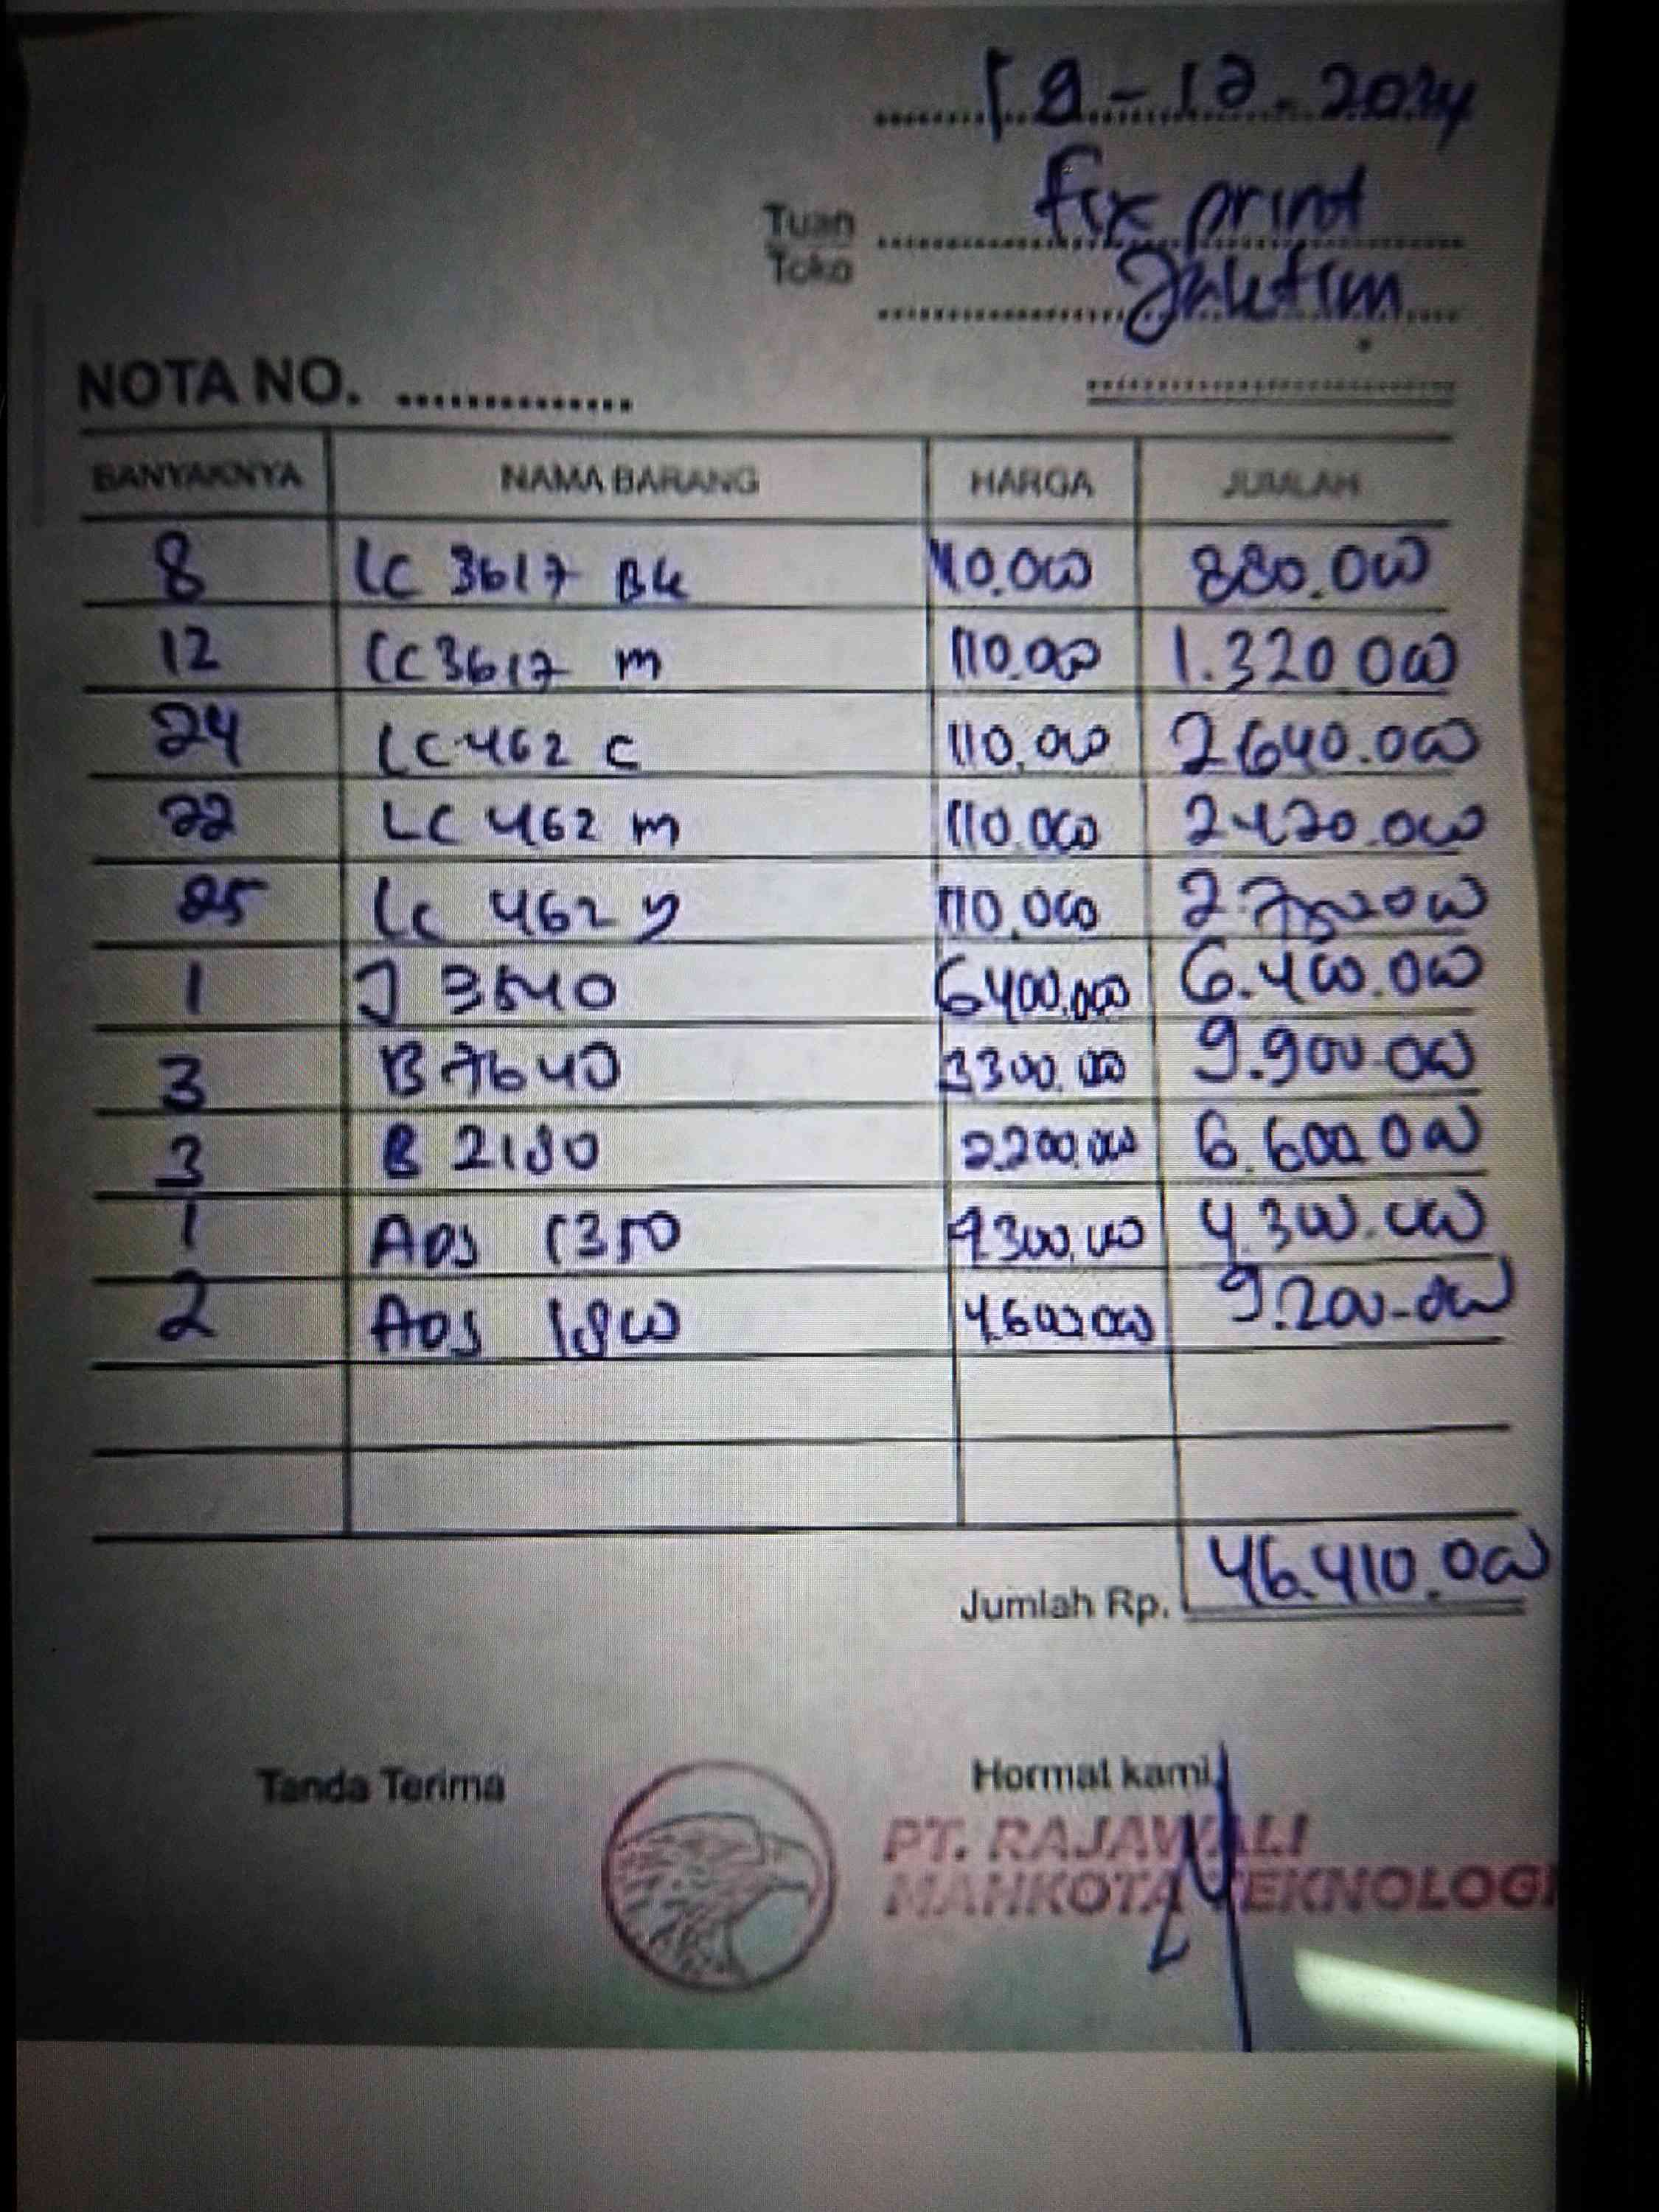 19-12-2024
Tuan fix print
Toko Jaktim
NOTA NO.
BANYAKNYA NAMA BARANG HARGA JUMLAH
8 LC 3617 BK 110.000 880.000
12 LC 3617 m 110.000 1.320 000
24 LC 462 C 110.000 2640.000
22 LC 462 m 110.000 2420.000
25 LC 462 y 110.000
1 J 3540 6400.000 6.400.000
3 B 7640 3300.000 9.900.000
3 B 2180 2.200.000 6.600.000
1 ADS 1350 4.300.000 4.300.000
2 ADS 1800 4.600.000 9.200.000
Jumlah Rp. 46.410.000
Tanda Terima Hormat kami,
PT. RAJAWALI
MAHKOTA TEKNOLOGI